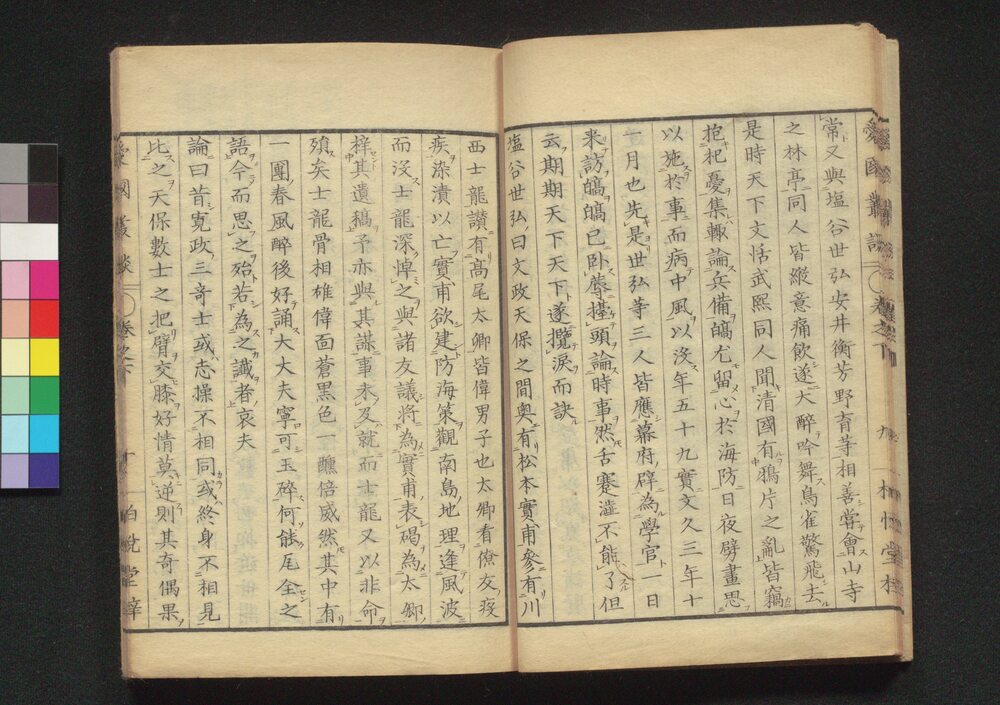 常又與塩谷世弘安井衡芳野育等相善嘗會山寺
之林亭同人皆縱意痛飲遂大醉吟舞鳥雀驚飛去
是時天下文恬武熙同人聞清國有鴉片之亂皆竊
抱杞憂集輙論兵備皜尤留心於海防日夜劈畫思
以施於事而病中風以没年五十九實文久三年十
一月也先是世弘等三人皆應幕府辟為學官一日
来訪皜皜已卧蓐擡頭論時事然舌蹇澁不能了但
云期期天下天下遂攬淚而訣
塩谷世弘曰文政天保之間奥有松本實甫參有川
西士龍讃有高尾太卿皆偉男子也太卿看僚友疫
疾染漬以亡實甫欲建防海策觀南島地理逢風波
而没士龍深悼之與諸友議將為實甫表碣為太卿
梓其遺稿予亦與其謀事未及就而士龍又以非命
殞矣士龍骨相雄偉面蒼黒色一醺倍威然其中有
一團春風醉後好誦大大夫寧可玉碎何能尾全之
語今而思之殆若為之讖者哀夫
論曰昔寛政三奇士或志操不相同或終身不相見
比之天保數士之把臂交膝好情莫逆則其奇偶果
愛國叢談